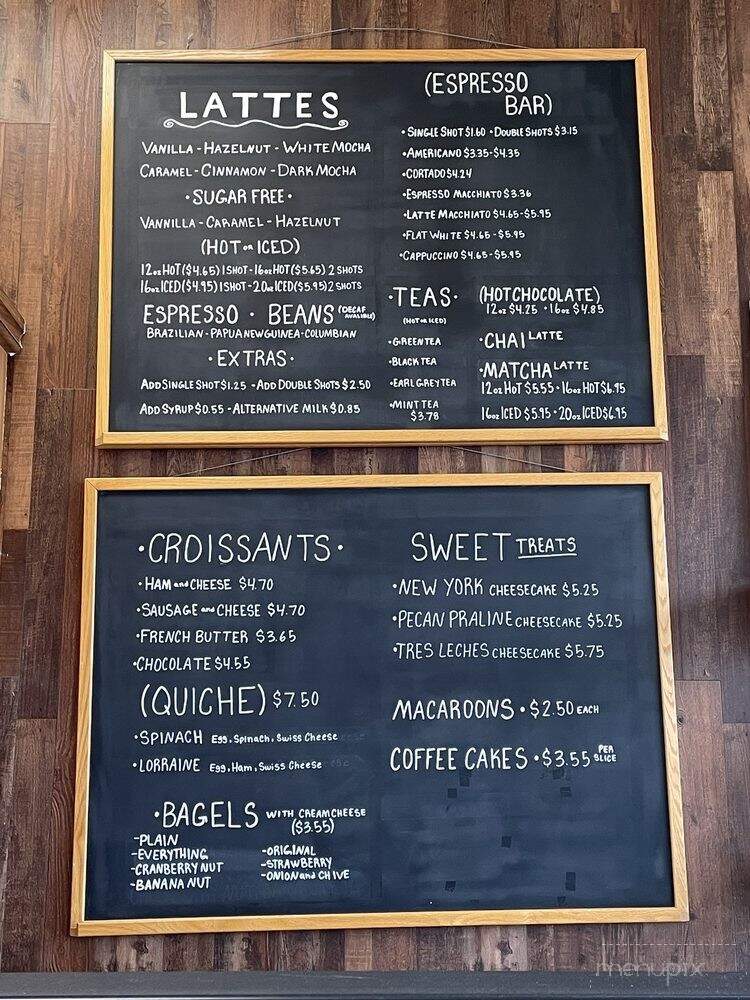 LATTES
VANILLA - HAZELNUT - WHITE MOCHA
CARAMEL - CINNAMON - DARK MOCHA
• SUGAR FREE •
VANNILLA - CARAMEL - HAZELNUT
(HOT or ICED)
12oz HOT ($4.65) 1 SHOT - 16oz HOT ($5.65) 2 SHOTS
16oz ICED ($4.95) 1 SHOT - 20oz ICED ($5.95) 2 SHOTS
ESPRESSO • BEANS (DECAF AVAILIBLE)
BRAZILIAN - PAPUA NEW GUINEA - COLUMBIAN
• EXTRAS •
ADD SINGLE SHOT $1.25 - ADD DOUBLE SHOTS $2.50
ADD SYRUP $0.55 - ALTERNATIVE MILK $0.85
(ESPRESSO
BAR)
• SINGLE SHOT $1.60 • DOUBLE SHOTS $3.15
• AMERICANO $3.35-$4.35
• CORTADO $4.24
• ESPRESSO MACCHIATO $3.36
• LATTE MACCHIATO $4.65-$5.95
• FLAT WHITE $4.65-$5.95
• CAPPUCCINO $4.65-$5.95
• TEAS •
(HOT or ICED)
• GREEN TEA
• BLACK TEA
• EARL GREY TEA
• MINT TEA
$3.78
(HOT CHOCOLATE)
12oz $4.25 • 16oz $4.85
• CHAI LATTE
• MATCHA LATTE
12oz HOT $5.55 • 16oz HOT $6.95
16oz ICED $5.95 • 20oz ICED $6.95
• CROISSANTS •
• HAM and CHEESE $4.70
• SAUSAGE and CHEESE $4.70
• FRENCH BUTTER $3.65
• CHOCOLATE $4.55
(QUICHE) $7.50
• SPINACH Egg, Spinach, Swiss Cheese
• LORRAINE Egg, Ham, Swiss Cheese
• BAGELS WITH CREAM CHEESE
($3.55)
- PLAIN
- EVERYTHING
- CRANBERRY NUT
- BANANA NUT
- ORIGINAL
- STRAWBERRY
- ONION and CHIVE
SWEET TREATS
• NEW YORK CHEESECAKE $5.25
• PECAN PRALINE CHEESECAKE $5.25
• TRES LECHES CHEESECAKE $5.75
MACAROONS • $2.50 EACH
COFFEE CAKES • $3.55 PER SLICE
menupix